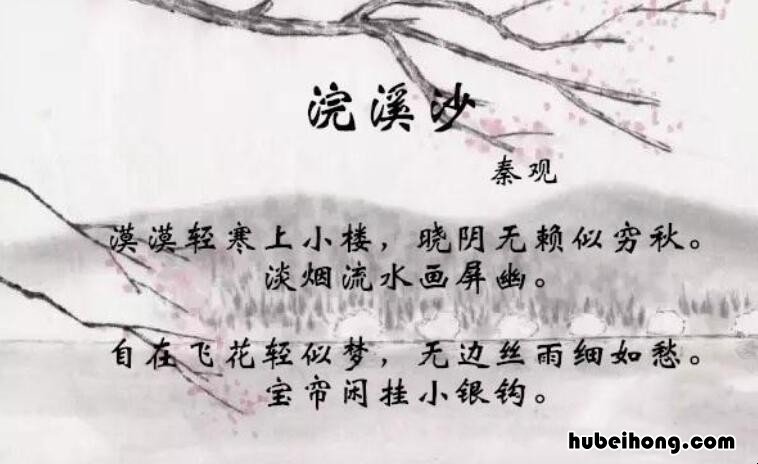 浣溪沙
秦观
漠漠轻寒上小楼，晓阴无赖似穷秋。
淡烟流水画屏幽。
自在飞花轻似梦，无边丝雨细如愁。
宝帘闲挂小银钩。
hubeihong.com